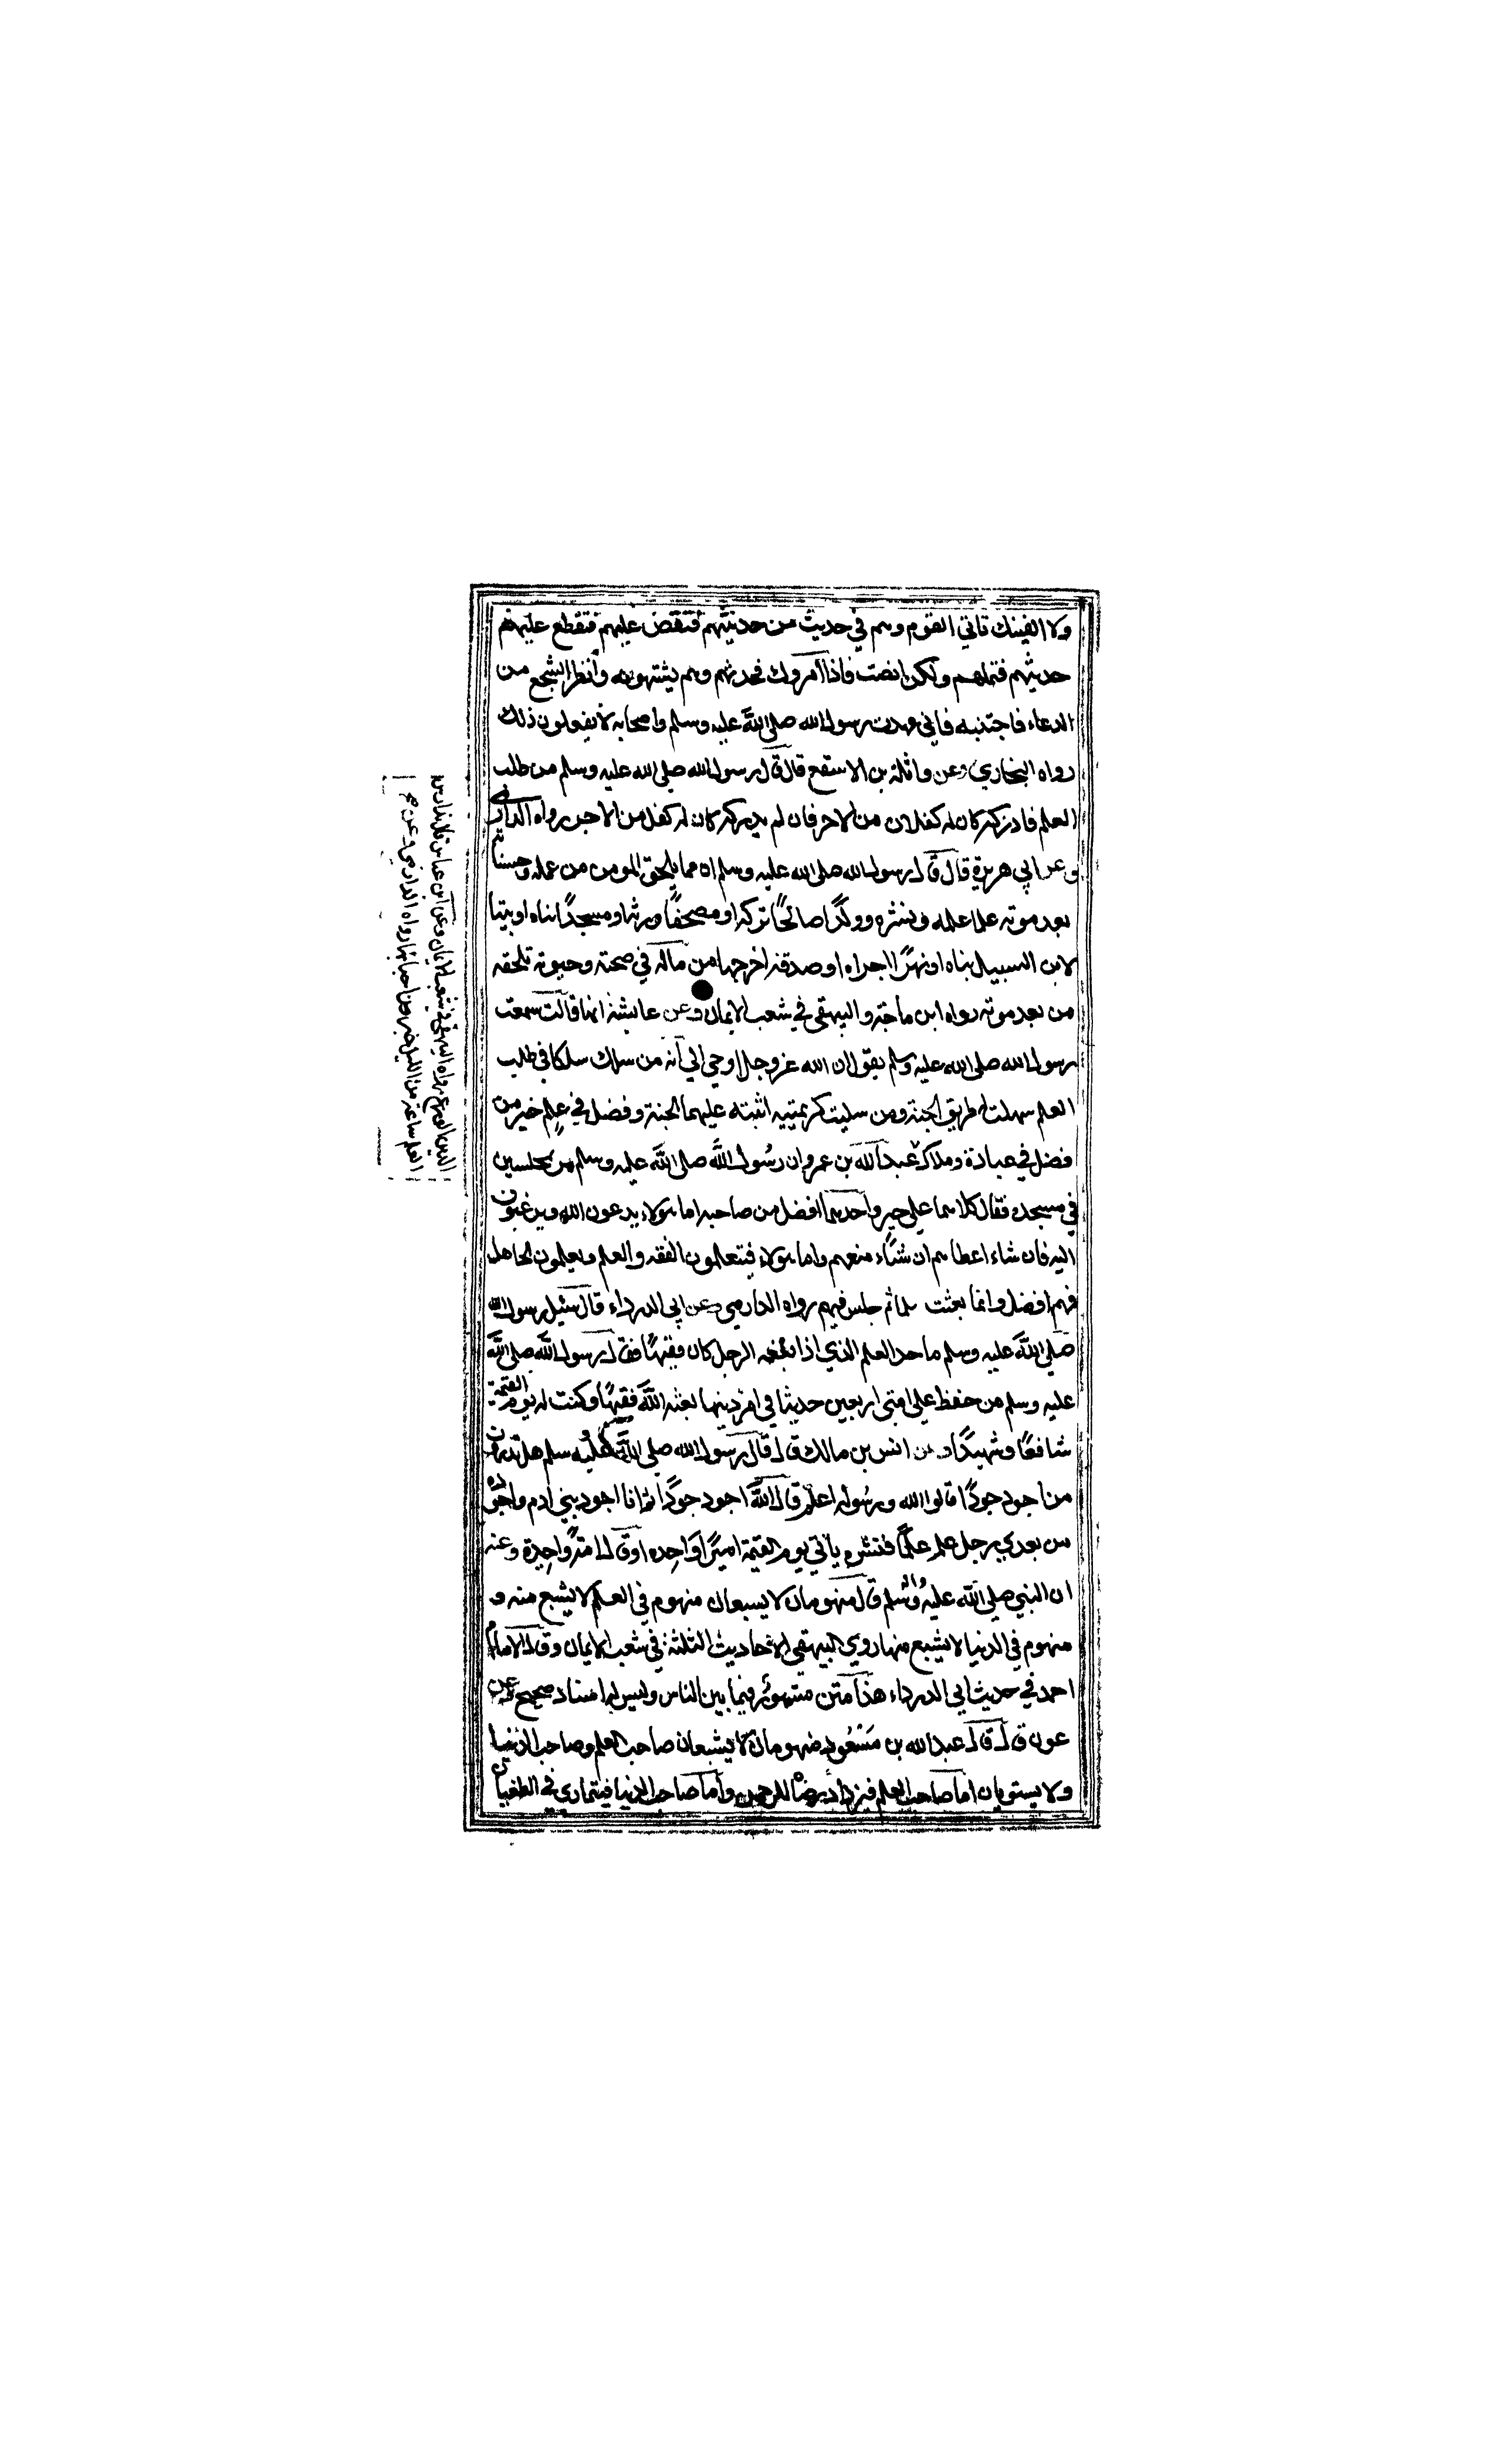 ولا الفينك تاتي القوم وهم في حديث من حديثهم فتقض عليهم فتقطع عليهم
حديثهم فتملهم ولكن انصت فاذا امروك فحدثهم وهم يشتهونه وانظر السجع من
الدعاء فاجتنبه فاني عهدت رسول الله صلى الله عليه وسلم واصحابه لا يفعلون ذلك
رواه البخاري وعن واثلة بن الاسقع قال قال رسول الله صلى الله عليه وسلم من طلب
العلم فادركه كان له كفلان من الاجر فان لم يدركه كان له كفل من الاجر رواه الدارمي
وعن ابي هريرة قال قال رسول الله صلى الله عليه وسلم ان مما يلحق المومن من عمله وحسناته
بعد موته علما علمه ونشره وولدًا صالحًا تركه او مصحفًا ورثه او مسجدًا بناه او بيتا
لابن السبيل بناه او نهرًا اجراه او صدقة اخرجها من ماله في صحته وحيوته تلحقه
من بعد موته رواه ابن ماجة والبيهقي في شعب الايمان وعن عايشة انها قالت سمعت
رسول الله صلى الله عليه وسلم يقول ان الله عز وجل اوحي الي انه من سلك سلكا في طلب
العلم سهلت له طريق الجنة ومن سلبت كريمتيه اثبته عليهما الجنة وفضل في علم خير من
فضل في عبادة وملاك عبد الله بن عمرو ان رسول الله صلى الله عليه وسلم مر بمجلسين
في مسجده فقال كلاهما على خير واحدهما افضل من صاحبه اما هولاء يدعون الله ويرغبون
اليه فان شاء اعطاهم ان شاء منعهم واما هولاء فيتعلمون الفقه والعلم ويعلمون الجاهل
فهم افضل وانما بعثت معلما ثم جلس فيهم رواه الدارمي وعن ابي الدرداء قال سئل رسول الله
صلى الله عليه وسلم ما حد العلم الذي اذا بلغه الرجل كان فقيهًا فقال رسول الله صلى الله
عليه وسلم من حفظ على امتي اربعين حديثا في امر دينها بعثه الله فقيهًا وكنت له يوم القيمة
شافعًا وشهيدًا وعن انس بن مالك قال قال رسول الله صلى الله عليه وسلم هل تدرون
من اجود جودًا قالوا الله ورسوله اعلم قال الله اجود جودًا ثم انا اجود بني ادم واجوده
من بعدي رجل علم علمًا فنشره ياتي يوم القيمة اميرًا واحده او قال امة واحدة وعنه
ان النبي صلى الله عليه واله وسلم قال منهومان لا يسبعان منهوم في العلم لا يشبع منه و
منهوم في الدنيا لا يشبع منها روي البيهقي الاحاديث الثلثة في شعب الايمان وقال الامام
احمد في حديث ابي الدرداء هذا متن مشهور فيما بين الناس وليس له اسناد صحيح عن
عون قال قال عبد الله بن مسعود منهومان لا يشبعان صاحب العلم وصاحب الدنيا
ولا يستويان اما صاحب العلم فيزداد رضا للرحمن واما صاحب الدنيا فيتمادي في الطغيان
الدين الورع رواه البيهقي في شعب الايمان وعن ابن عباس قال تدارس
العلم ساعة من الليل خير من احيائها رواه الدارمي وعن